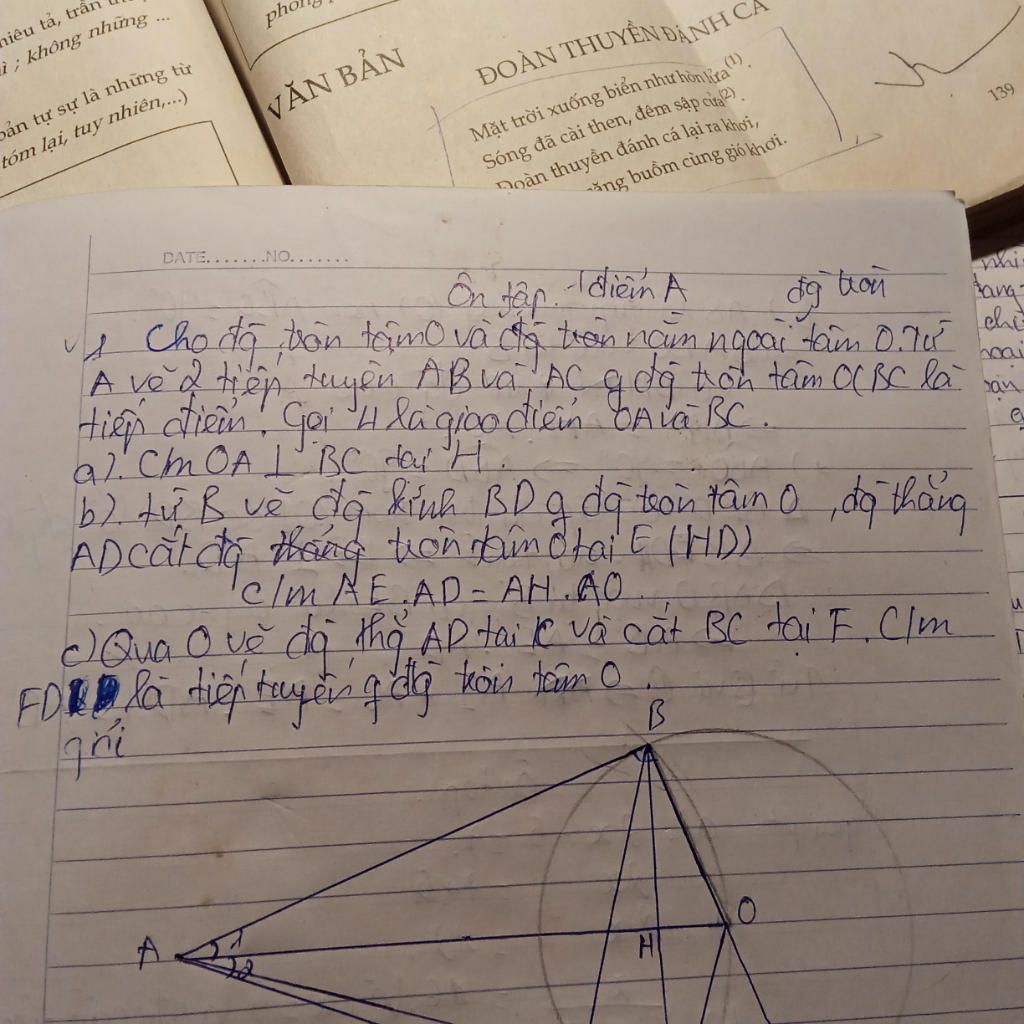 niêu tả, trần th
ì ; không những ...
bản tự sự là những từ
tóm lại, tuy nhiên,...)
phong p
VĂN BẢN
ĐOÀN THUYỀN ĐÁNH CÁ
Mặt trời xuống biển như hòn lửa(1).
Sóng đã cài then, đêm sập cửa(2).
Đoàn thuyền đánh cá lại ra khơi,
căng buồm cùng gió khơi.
139
DATE.......NO.......
Ôn tập. 1 điểm A đg tròn
1 Cho đg tròn tâm O và đg tròn nằm ngoài tâm O. Từ
A vẽ 2 tiếp tuyến AB và AC q đg tròn tâm O (BC là
tiếp điểm. Gọi H là giao điểm OA và BC.
a). Cm OA ⊥ BC tại H.
b). từ B vẽ đg kính BD q đg tròn tâm O, đg thẳng
AD cắt đg thẳng tròn tâm O tại E (HD)
c/m AE.AD = AH.AO
c) Qua O vẽ đg thg AD tại K và cắt BC tại F. C/m
FD là tiếp tuyến q đg tròn tâm O.
B
A
1
2
H
O